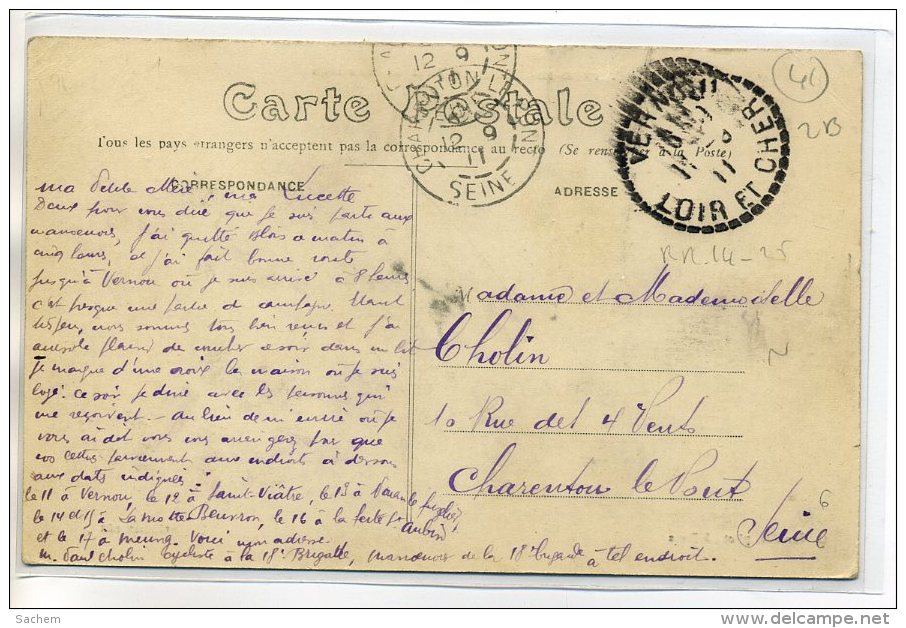 Carte Postale
Tous les pays étrangers n'acceptent pas la correspondance au recto (Se renseigner à la Poste)
CORRESPONDANCE
ADRESSE
CHARENTON LE PONT
12 9
11
SEINE
12 9
VERNOU
11
LOIR ET CHER
41
2B
RR. 14-25
ma petite Mère, ma Lucette
Deux pour vous dire que je suis parti aux
manœuvres, j'ai quitté Blois ce matin à
cinq heures, et j'ai fait bonne route
jusqu'à Vernou où je suis arrivé à 8 heures
c'est presque une partie de campagne.
nous sommes très bien reçus et j'ai
plaisir de coucher ce soir dans un lit
Je marque d'une croix la maison où je suis
logé. ce soir je dîne avec les personnes qui
me reçoivent - au lieu de m'écrire où je
vous ai dit vous vous arrangez par que
vos cartes parviennent aux endroits ci dessous
aux dates indiquées :
le 11 à Vernou, le 12 à Saint-Viâtre, le 13 à
le 14 et 15 à Lamotte-Beuvron, le 16 à la ferté St
Aubin
et le 17 à meung. Voici mon adresse.
m. Paul Cholin Cycliste à la 18e Brigade, manœuvres de la 18e brigade à tel endroit.
Madame et Mademoiselle
Cholin
10 Rue des 4 Vents
Charenton le Pont
Seine
6
Sachem
www.delcampe.net